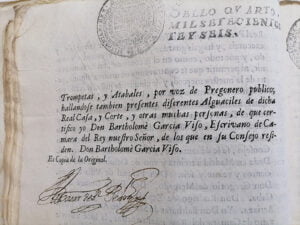 SELLO QVARTO
MILSETECIENT
TEYSEIS.
Trompetas, y Atabales, por voz de Pregonero publico,
hallandose tambien presentes diferentes Alguaciles de dicha
Real Casa, y Corte, y otras muchas personas, de que cer-
tifico yo Don Bartholomè Garcia Viso, Escrivano de Ca-
mara del Rey nuestro Señor, de los que en su Consejo resi-
den. Don Bartholomè Garcia Viso.
Es Copia de la Original.